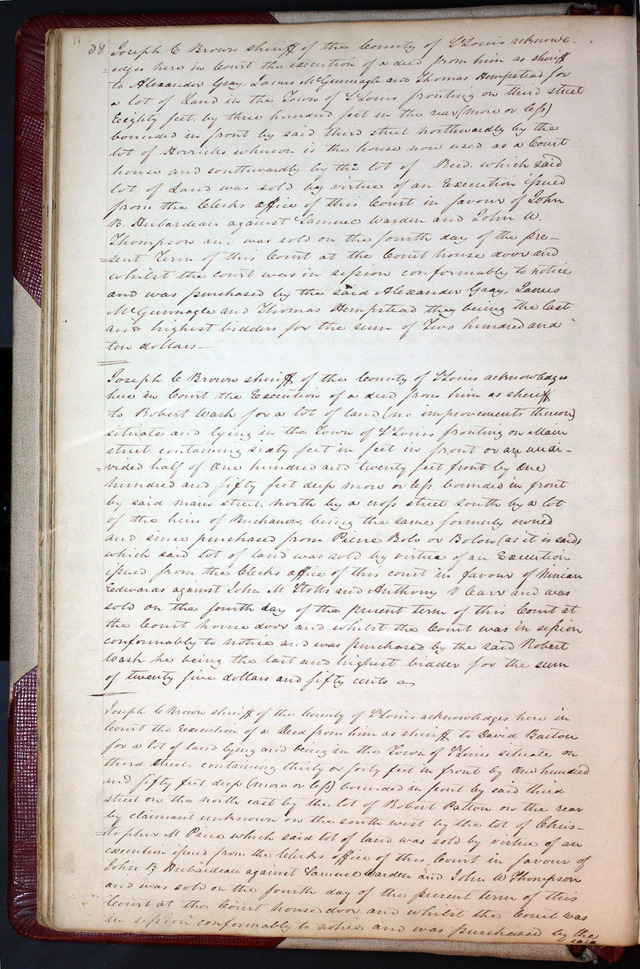 38 Joseph C Brown sheriff of the County of St Louis acknowl-
edges here in Court the execution of a deed from him as sheriff
to Alexander Gray, James McGunnagle and Thomas Hempstead for
a lot of Land in the Town of St Louis fronting on third street
Eighty feet by three hundred feet in the rear (more or less)
bounded in front by said third street northwardly by the
lot of Horricks whereon is the house now used as a Court
house and southwardly by the lot of Reed. which said
lot of Land was sold by virtue of an Execution issued
from the Clerks office of this Court in favour of John
B. Hubardeau against Samuel Warden and John W.
Thompson and was sold on the fourth day of the pre-
sent Term of this Court at the Court house door and
whilst the court was in session conformably to notice
and was purchased by the said Alexander Gray, James
McGunnagle and Thomas Hempstead they being the last
and highest bidders for the sum of Two hundred and
ten dollars
Joseph C Brown sheriff of the County of St Louis acknowledges
here in Court the Execution of a deed from him as sheriff
to Robert Wash for a lot of land (no improvements thereon)
situate and lying in the Town of St Louis fronting on Main
street containing sixty feet in feet in front or an undi-
vided half of One hundred and twenty feet front by One
hundred and fifty feet deep more or less bounded in front
by said main street, north by a cross street south by a lot
of the heirs of Buchanon, being the same formerly owned
and since purchased from Pierre Bolo or Bolon (as it is said)
which said lot of land was sold by virtue of an Execution
issued from the Clerks office of this court in favour of Ninian
Edwards against John M Stotts and Anthony V Carr and was
sold on the fourth day of the present term of this Court at
the Court house door and whilst the Court was in session
conformably to notice and was purchased by the said Robert
Wash he being the last and highest bidder for the sum
of twenty five dollars and fifty cents
Joseph C Brown sheriff of the County of St Louis acknowledges here in
Court the Execution of a Deed from him as sheriff to David Barton
for a lot of land lying and being in the Town of St Louis situate on
third street containing thirty or forty feet in front by One hundred
and fifty feet deep (more or less) bounded in front by said third
street on the north east by the lot of Robert Patton on the rear
by claimant unknown on the south west by the lot of Chris-
topher M Price which said lot of land was sold by virtue of an
execution issued from the Clerks office of this Court in favour of
John B Hubardeau against Samuel Warden and John W Thompson
and was sold on the fourth day of the present term of this
Court at the Court house door and whilst the Court was
in session conformably to notice and was purchased by the
said